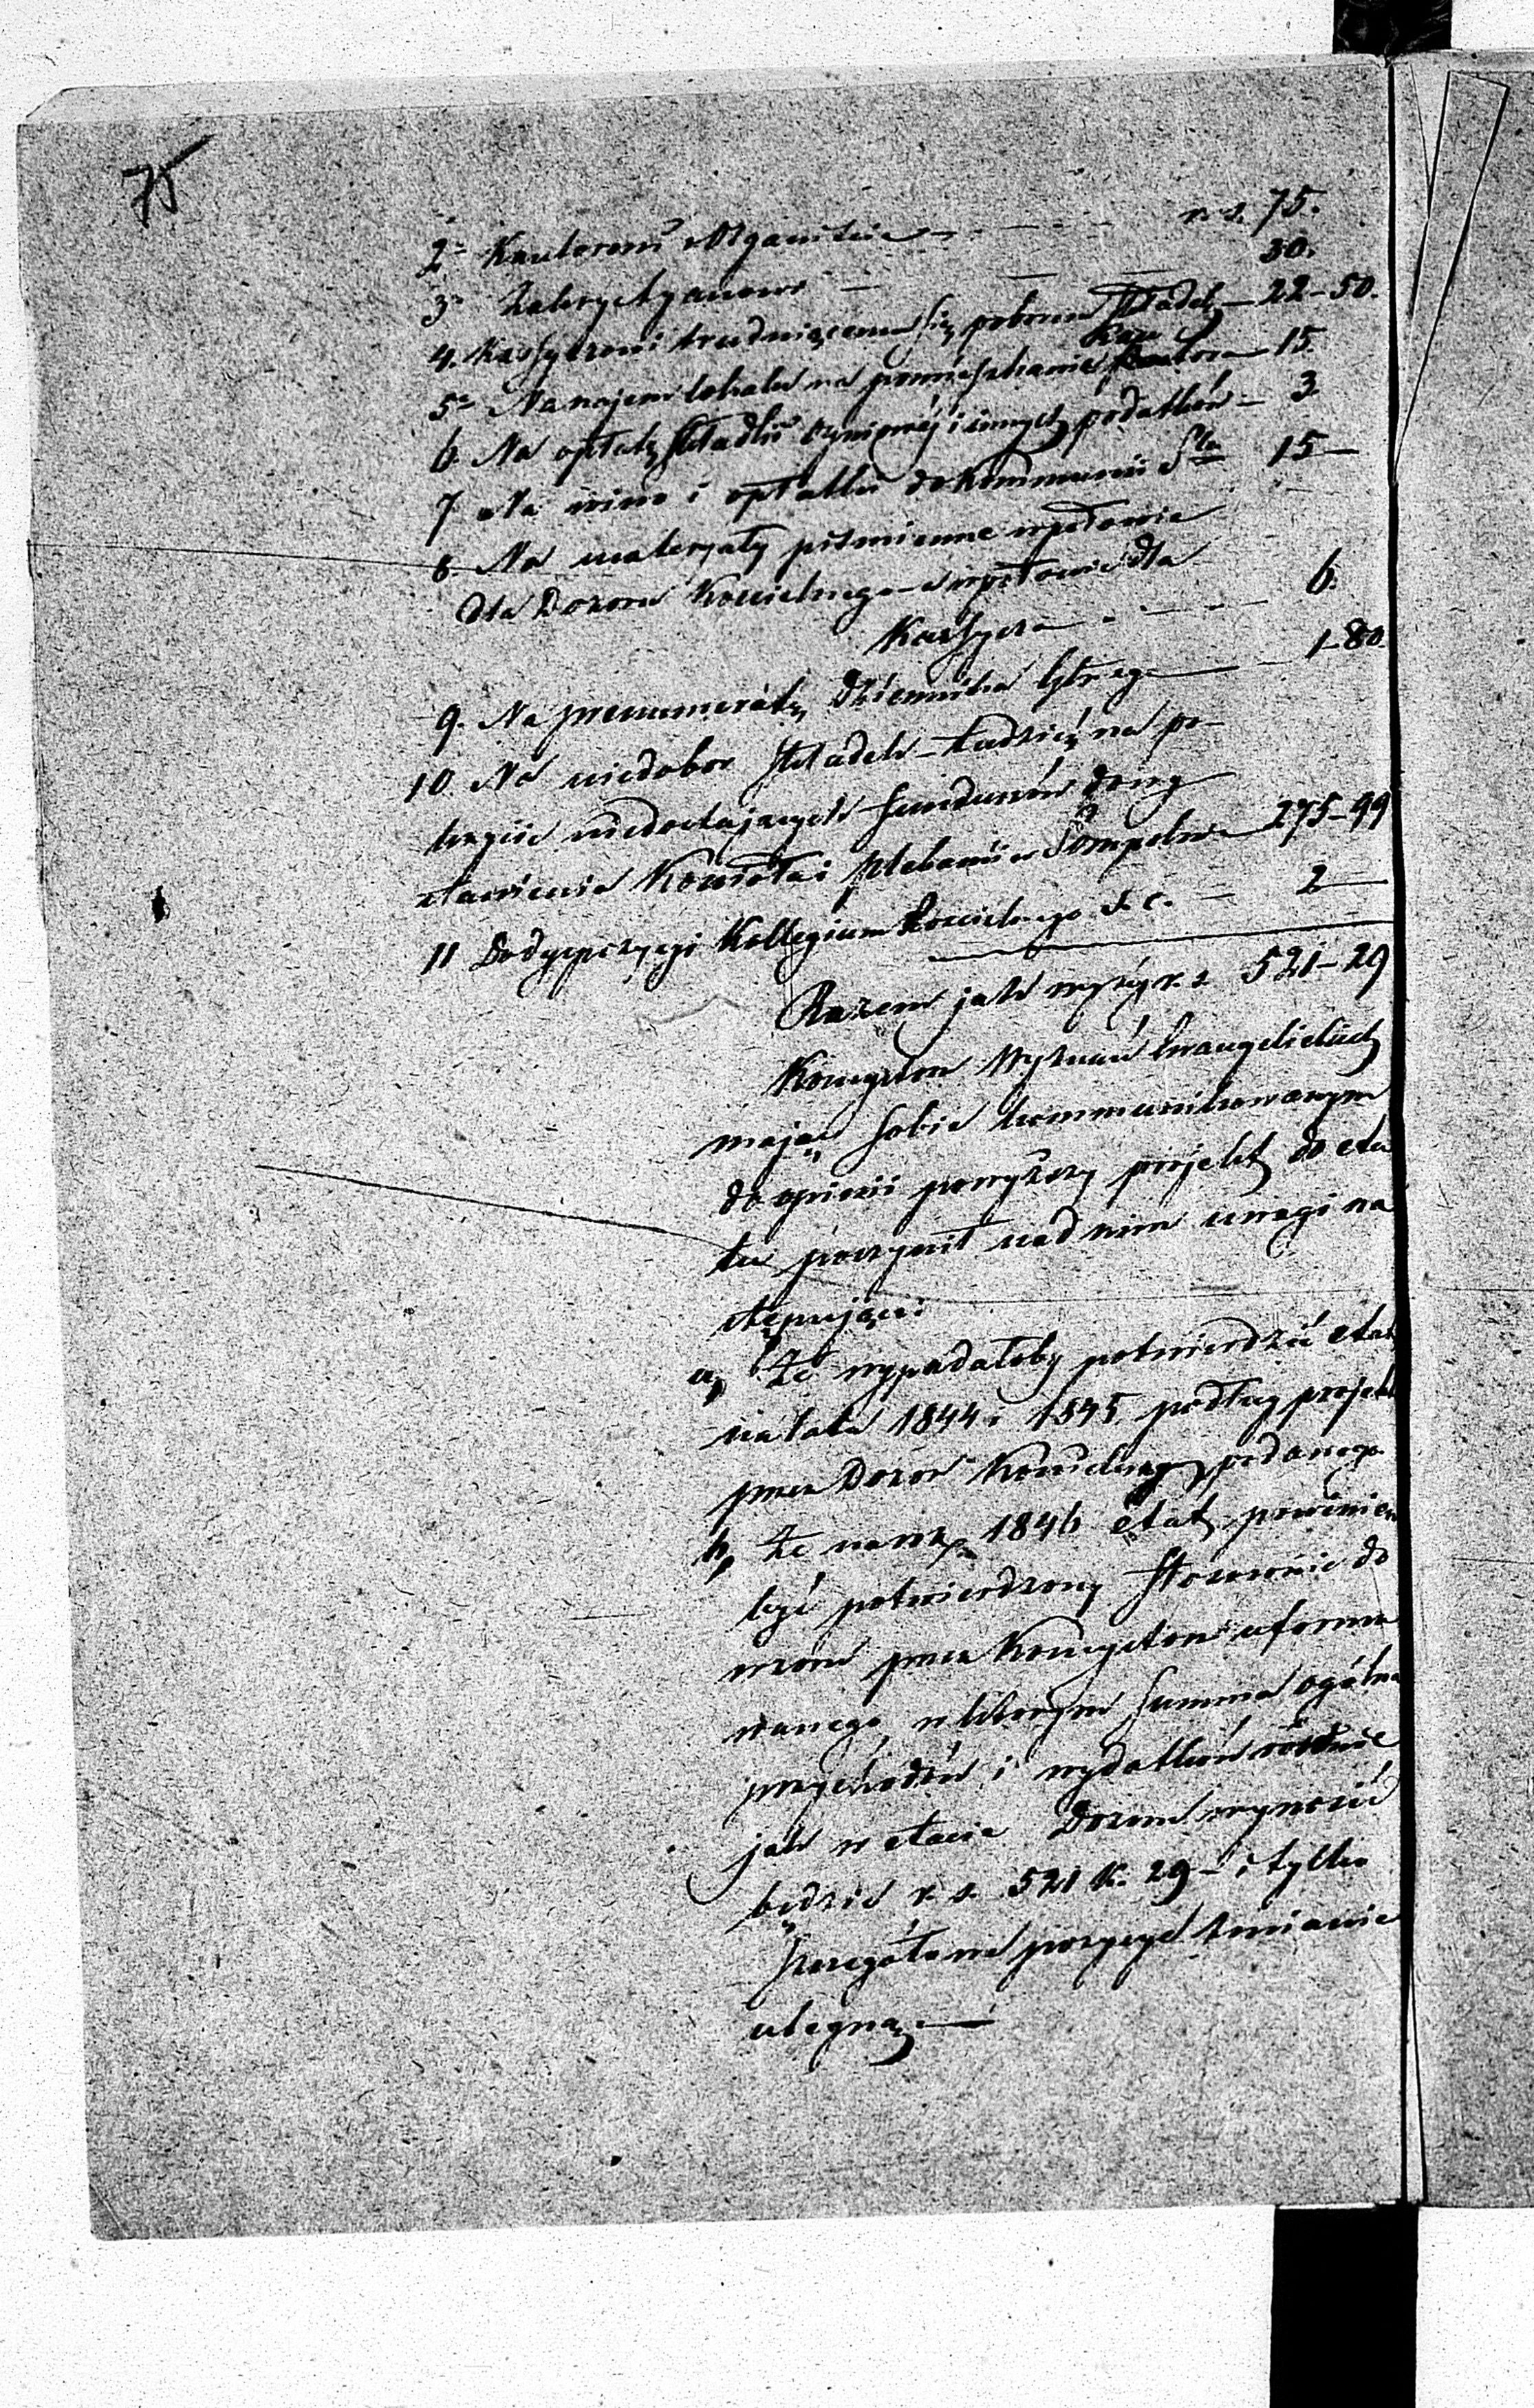 75
2. Kantorowi i Organiście — r. s. 75.
3. Zakrystyanowi — 30.
4. Kassyerowi trudniącemu się poborem składek — 22–50.
5. Na najem lokalu na pomieszkanie Kantora — 15.
6. Na opłatę składki ogniowéj i innych podatków — 3
7 Na wino i opłatki do kommunii Sta 15 —
8. Na materyały piśmienne w połowie
dla Dozoru Kościelnego a w połowie dla
Kassyera — 6.
9. Na prenumeratę Dziennika — 1–80.
10. Na niedobor składek tudzież na po-
krycie niedostających funduszów do wy
stawienia Kościoła i plebanii w Sompolnie — 275–99
11 Do dyspozycyi Kollegium Kościelnego — 2 —
Razem jak wyżéj r. s. 521–29
Konsystorz Wyznań Ewangelickich
mając sobie kommunikowanym
do opinii powyższy projekt do eta
tu poczynił nad nim uwagi na
stępujące:
a, Że wypadałoby potwierdzić etat
na lata 1844 i 1845 podług projekt
przez Dozor Kościelny podanego
b, Że na rok 1846 etat powinien
być potwierdzony stosownie do
wzoru przez Konsystorz uformo
wanego, w którym summa ogólna
przychodów i wydatków również
jak w etacie Dozoru wynosić
będzie r. s. 521 k. 29 – i tylko
szczegółowe pozycye zmianie
ulegną. —